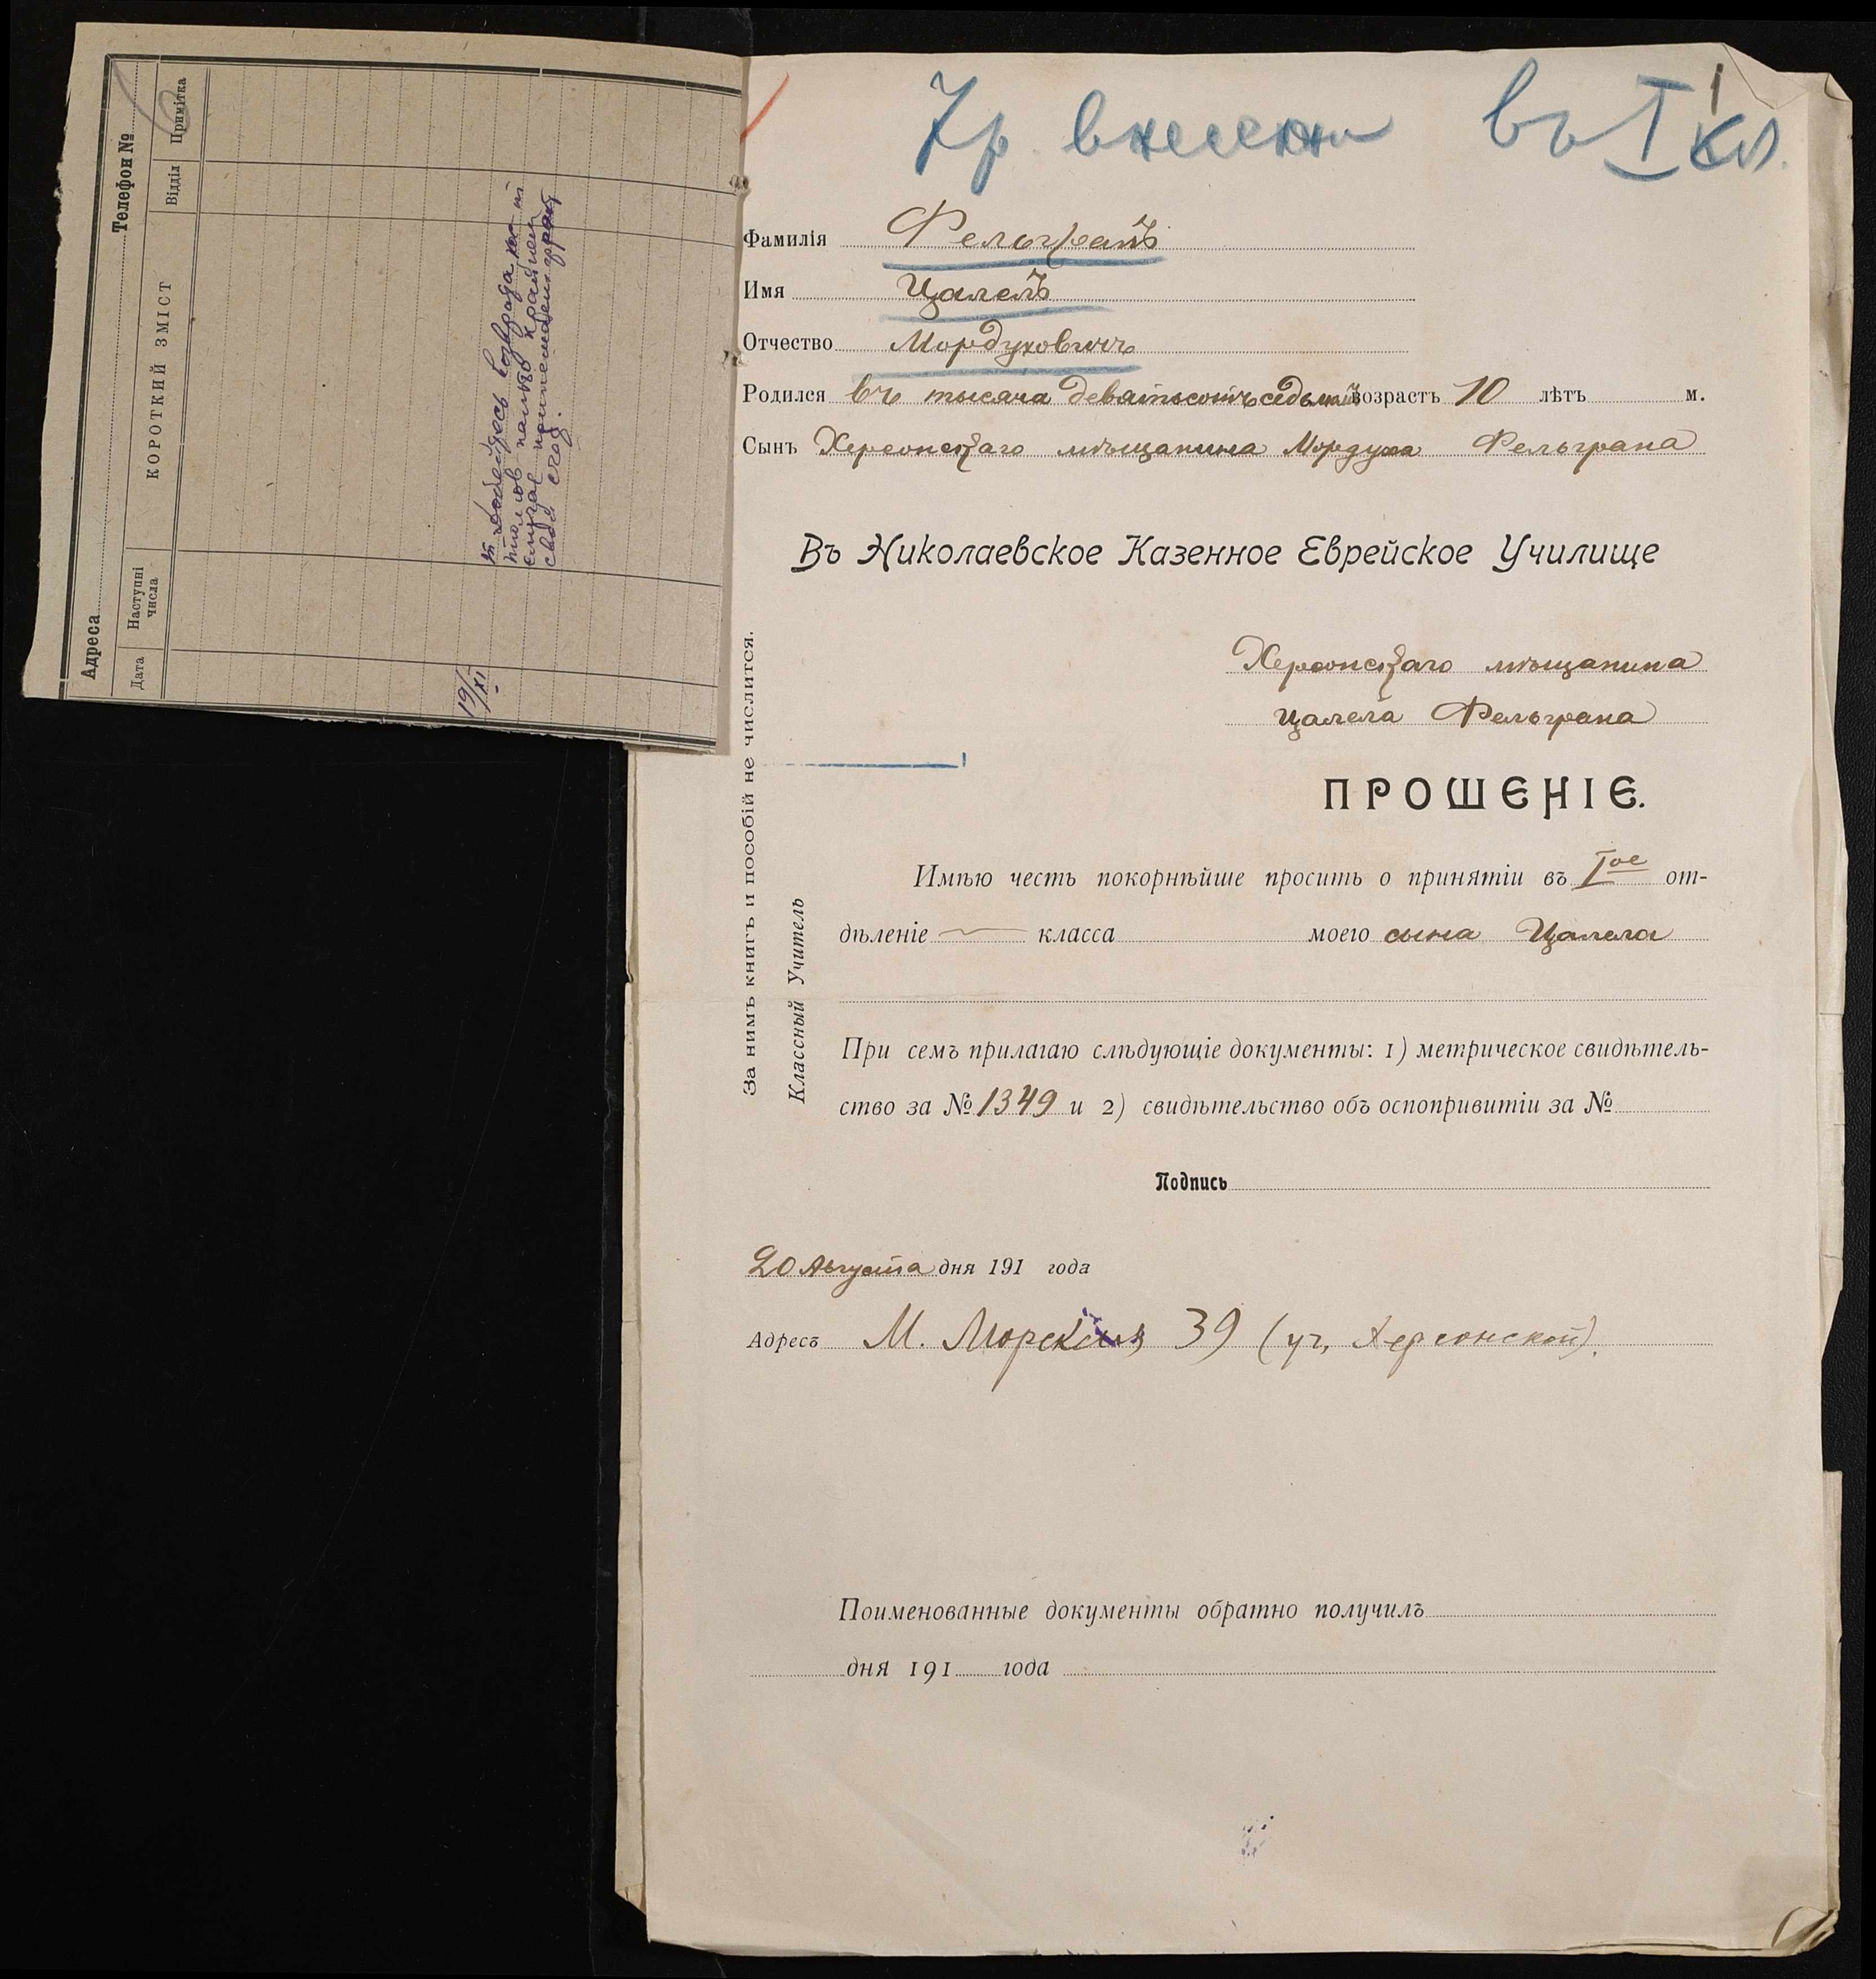 Адреса
Телефон №
Дата
Наступні числа
КОРОТКИЙ ЗМІСТ
Відділ
Примітка
19/XI
въ I кл.
Фамилія Фельгранъ
Имя Цалелъ
Отчество Мордуховичъ
Родился въ тысяча девятьсотъ седьмомъ возрастъ 10 лѣтъ м.
Сынъ Херсонскаго мѣщанина Мордуха Фельграна
Въ Николаевское Казенное Еврейское Училище
Херсонскаго мѣщанина
Цалела Фельграна
ПРОШЕНІЕ.
Имѣю честь покорнѣйше просить о принятіи въ Iое от-
дѣленіе класса моего сына Цалела
При семъ прилагаю слѣдующіе документы: 1) метрическое свидѣтель-
ство за № 1349 и 2) свидѣтельство объ оспопривитіи за №
Подпись
20 Августа дня 191 года
Адресъ М. Морская 39 (уг. Херсонской).
Поименованные документы обратно получилъ
дня 191 года
За нимъ книгъ и пособій не числится.
Классный Учитель